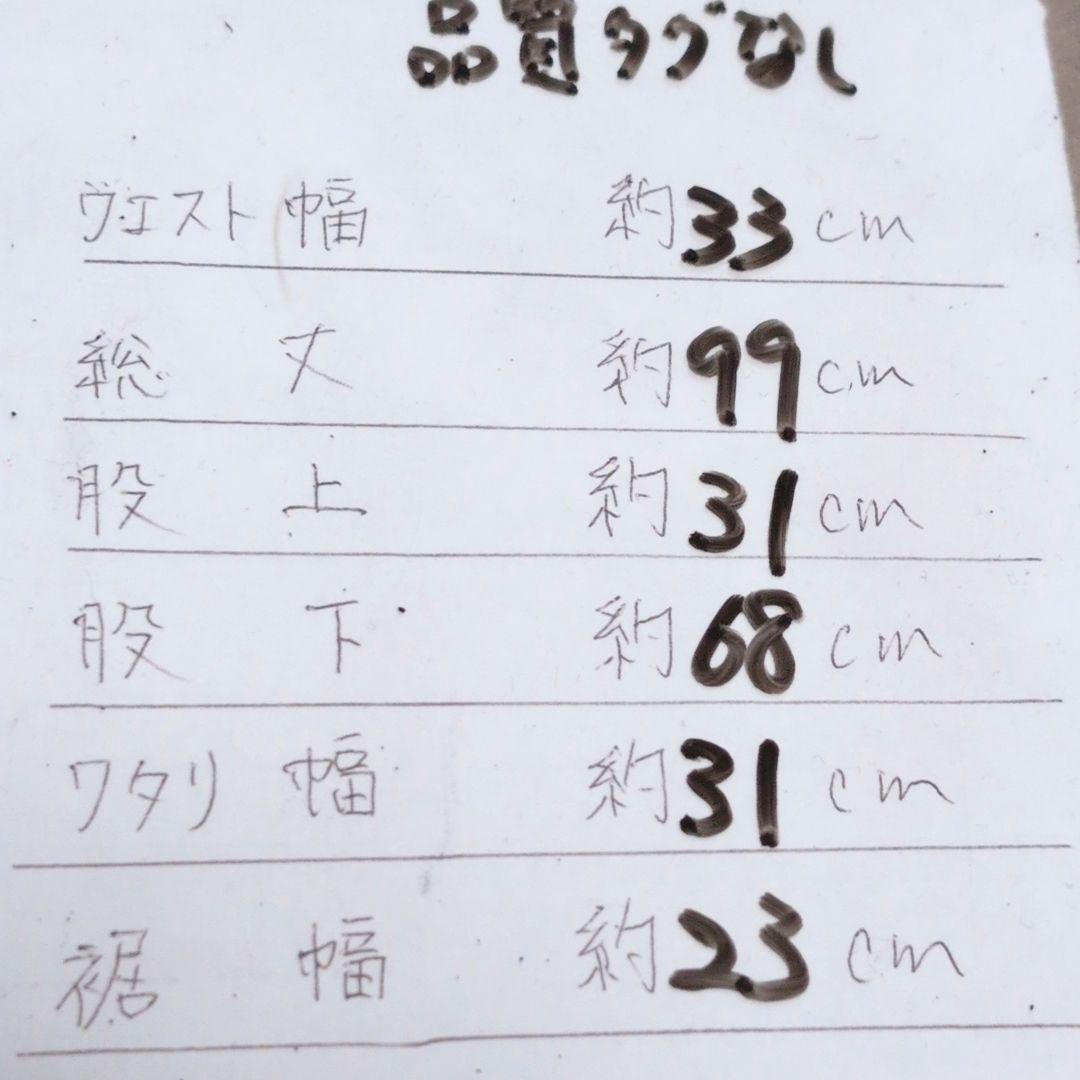 品質タグなし
ヴエスト幅 約33cm
総丈 約99cm
股上 約31cm
股下 約68cm
ワタリ幅 約31cm
裾幅 約23cm